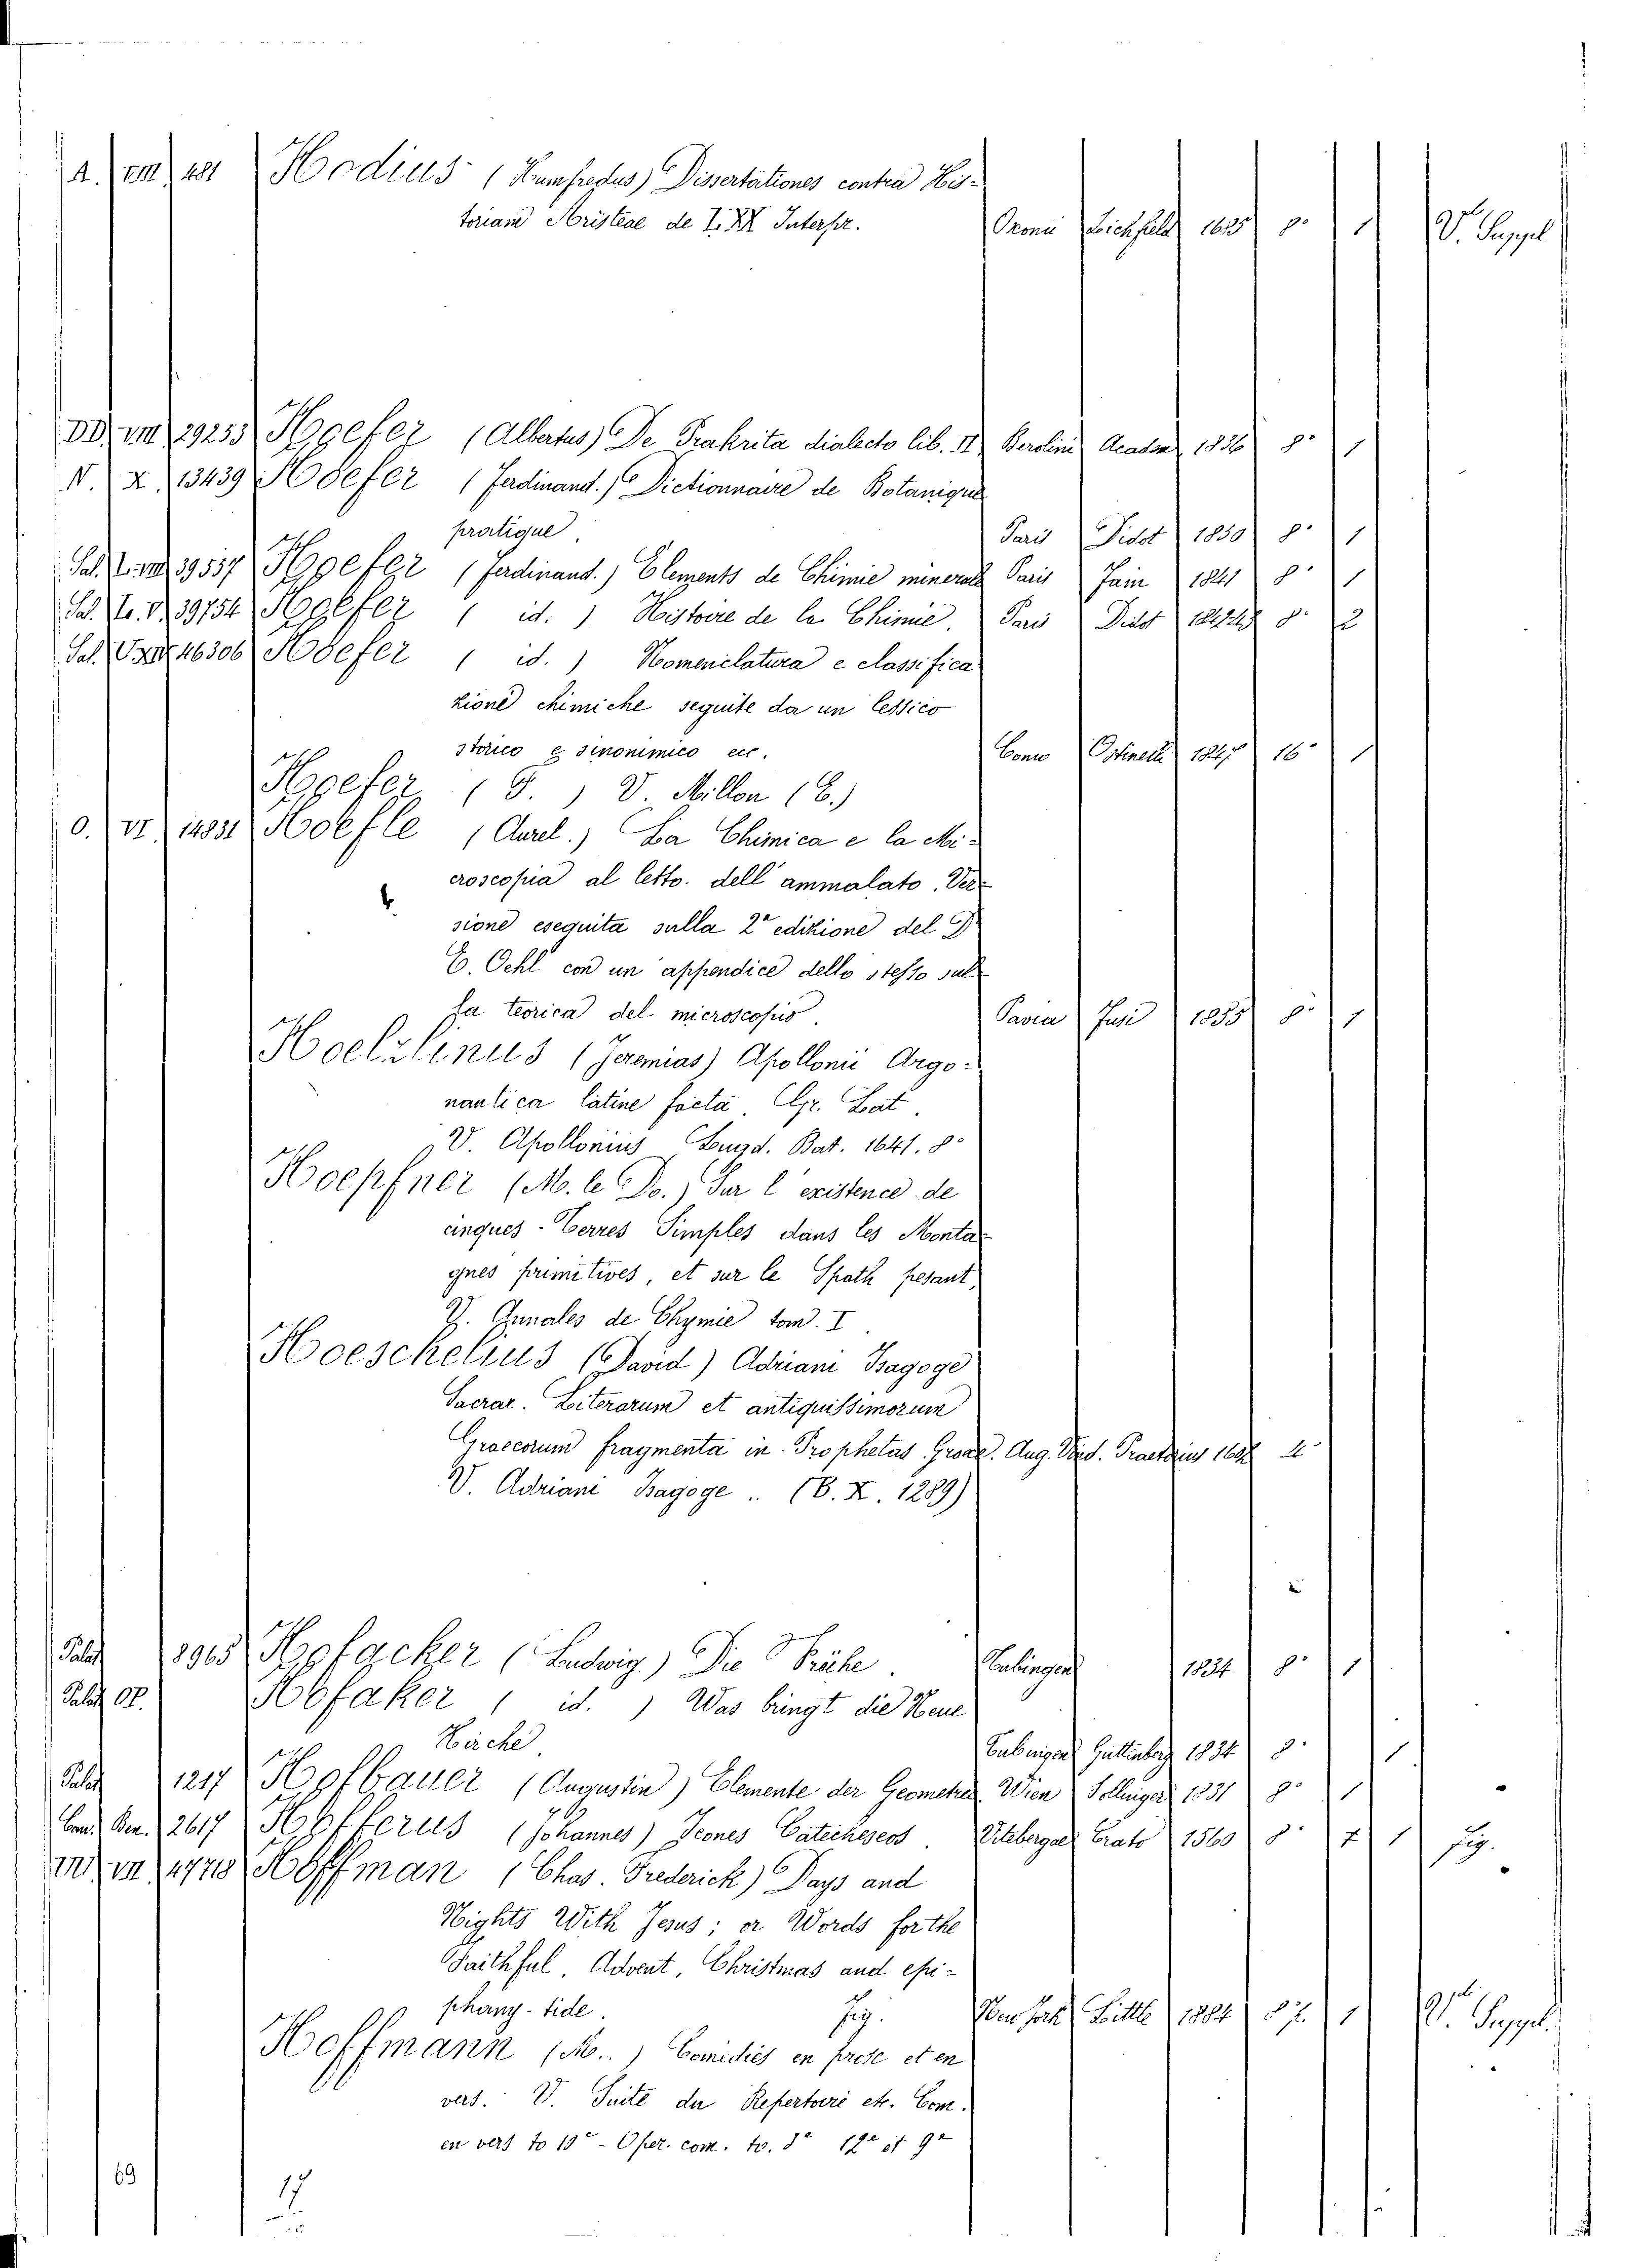 A. VIII 481 Hodius (Humfredus) Dissertationes contra His-
toriam Aristeae de LXX Interpr. Oxonii Leichfield 1685 8° 1 V. Suppl
DD. VIII 29253 Hoefer (Albertus) De Prakrita dialecto lib. II Berolini Academ 1836 8° 1
N. X 13439 Hoefer (Ferdinand.) Dictionnaire de Botanique
pratique Paris Didot 1850 8° 1
Sal. 39537 Hoefer (Ferdinand.) Elements de Chimie minerale Paris Fain 1841 8° 1
Sal. 39754 Hoefer ( id. ) Histoire de la Chimie. Paris Didot 8° 2
Sal. 46306 Hoefer ( id. ) Nomenclatura e classifica
zione chimiche seguite da un lessico
storico e sinonimico ecc. Como Ostinelli 1847 16° 1
Hoefer (F. ) V. Millon (E.)
O. VI 14831 Hoefle (Aurel.) La Chimica e la Mi-
croscopia al letto dell' ammalato. Ver-
sione eseguita sulla 2ª edizione del D
E. Oehl con un appendice dello stesso sul
la teorica del microscopio. Pavia Fusi 1855 8° 1
Hoelzlinus (Jeremias) Apollonii Argo-
nautica latine facta. Gr. Lat.
V. Apollonius Lugd. Bat. 1641. 8°
Hoepfner (M. le Do.) Sur l'existence de
cinques-Terres Simples dans les Monta
gnes primitives, et sur le Spath pesant,
V. Annales de Chymie tom. I.
Hoeschelius (David) Adriani Isagoge
Sacrar. Literarum et antiquissimorum
Graecorum fragmenta in Prophetas Graec. Aug. Vind. Praetorius 4°
V. Adriani Isagoge .. (B. X. 1289)
Palat 8965 Hofacker (Ludwig) Die Frühe. Tubingen 1834 8° 1
Palat Hofaker ( id. ) Was bringt die Neue
Kirche. Tubingen Guttenberg 1834 8° 1
Palat 1217 Hofbauer (Augustin) Elemente der Geometrie Wien Sollinger 1831 8° 1
2617 Hofferus (Johannes) Icones Catecheseos. Vitebergae Crato 1560 8° 1 fig.
VIII 4778 Hoffman (Chas. Frederick) Days and
Nights With Jesus; or Words for the
Faithful. Advent, Christmas and epi-
phany-tide. fig. New York Little 1884 8° 1 V. Suppl.
Hoffmann (M..) Comidies en prose et en
vers. V. Suite du Repertoire etc. Com.
en vers to 19° - Oper. com. to. 3° 12° et 9°
69
17